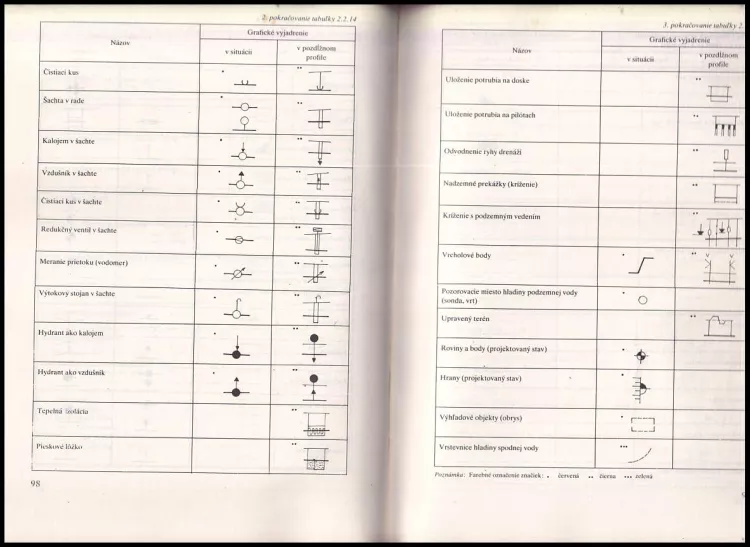 2. pokračovanie tabuľky 2.2.14
Názov
Grafické vyjadrenie
v situácii
v pozdĺžnom
profile
Čistiaci kus
Šachta v rade
Kalojem v šachte
Vzdušník v šachte
Čistiaci kus v šachte
Redukčný ventil v šachte
Meranie prietoku (vodomer)
Výtokový stojan v šachte
Hydrant ako kalojem
Hydrant ako vzdušník
Tepelná izolácia
Pieskové lôžko
98
3. pokračovanie tabuľky 2.
Názov
Grafické vyjadrenie
v situácii
v pozdĺžnom
profile
Uloženie potrubia na doske
Uloženie potrubia na pilótach
Odvodnenie ryhy drenáží
Nadzemné prekážky (kríženie)
Kríženie s podzemným vedením
Vrcholové body
Pozorovacie miesto hladiny podzemnej vody
(sonda, vrt)
Upravený terén
Roviny a body (projektovaný stav)
Hrany (projektovaný stav)
Výhľadové objekty (obrys)
Vrstevnice hladiny spodnej vody
Poznámka: Farebné označenie značiek: • červená •• čierna ••• zelená